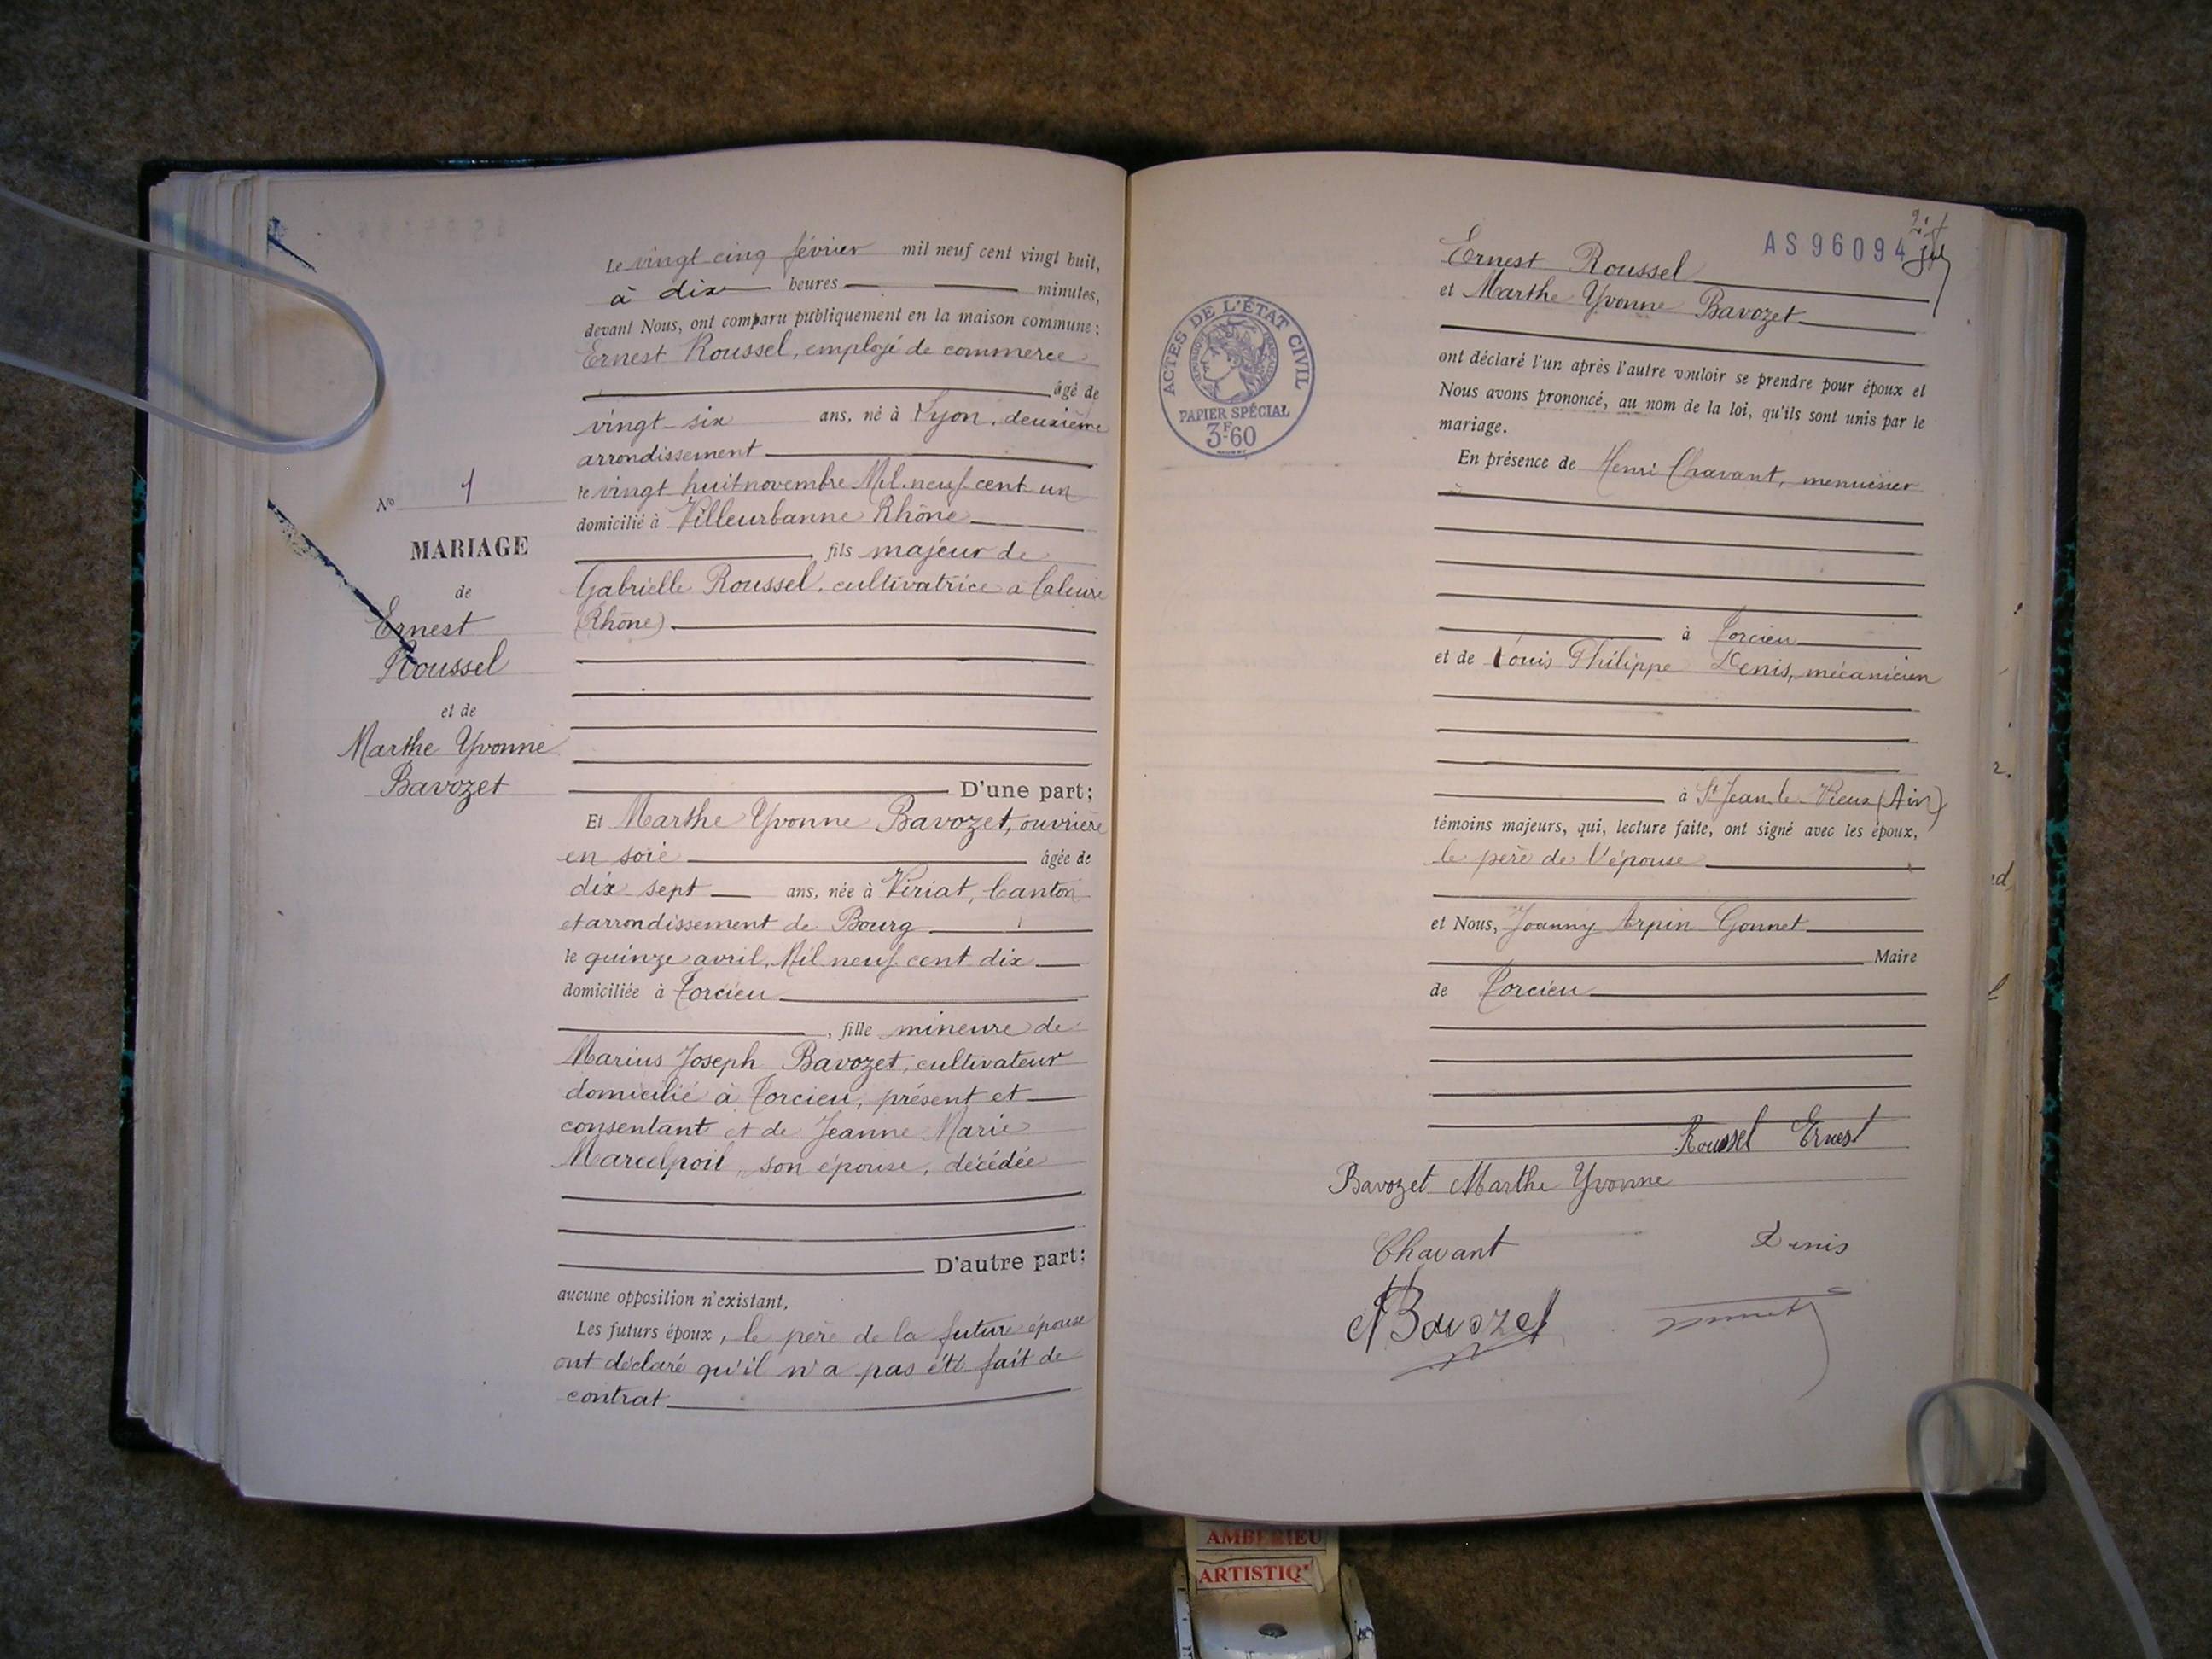 Le vingt cinq février mil neuf cent vingt huit,
à dix heures minutes,
devant Nous, ont comparu publiquement en la maison commune :
Ernest Roussel, employé de commerce
âgé de
vingt-six ans, né à Lyon, deuxième
arrondissement
le vingt huit novembre Mil neuf cent un
domicilié à Villeurbanne Rhône
, fils majeur de
Gabrielle Roussel, cultivatrice a Caluire
(Rhône)
D'une part ;
N° 1
MARIAGE
de
Ernest
Roussel
et de
Marthe Yvonne
Bavozet
Et Marthe Yvonne Bavozet, ouvrière
en soie âgée de
dix-sept ans, née à Viriat, Canton
et arrondissement de Bourg
le quinze avril, Mil neuf cent dix
domiciliée à Torcieu
, fille mineure de
Marius Joseph Bavozet, cultivateur
domicilié à Torcieu, présent et
consentant et de Jeanne Marie
Marcelpoil, son épouse, décédée
D'autre part ;
aucune opposition n'existant,
Les futurs époux, le père de la future épouse
ont déclaré qu'il n'a pas été fait de
contrat
AS 96094
ACTES DE L'ÉTAT CIVIL
RÉPUBLIQUE FRANÇAISE
PAPIER SPÉCIAL
3F60
Ernest Roussel
et Marthe Yvonne Bavozet
ont déclaré l'un après l'autre vouloir se prendre pour époux et
Nous avons prononcé, au nom de la loi, qu'ils sont unis par le
mariage.
En présence de Henri Chavant, menuisier
à Torcieu
et de Louis Philippe Denis, mécanicien
à St Jean-le-Vieux (Ain)
témoins majeurs, qui, lecture faite, ont signé avec les époux,
le père de l'épouse
et Nous, Joanny Arpin Gonnet
Maire
de Torcieu
Roussel Ernest
Bavozet Marthe Yvonne
Chavant Denis
Bavozet
AMBERIEU
ARTISTIQ